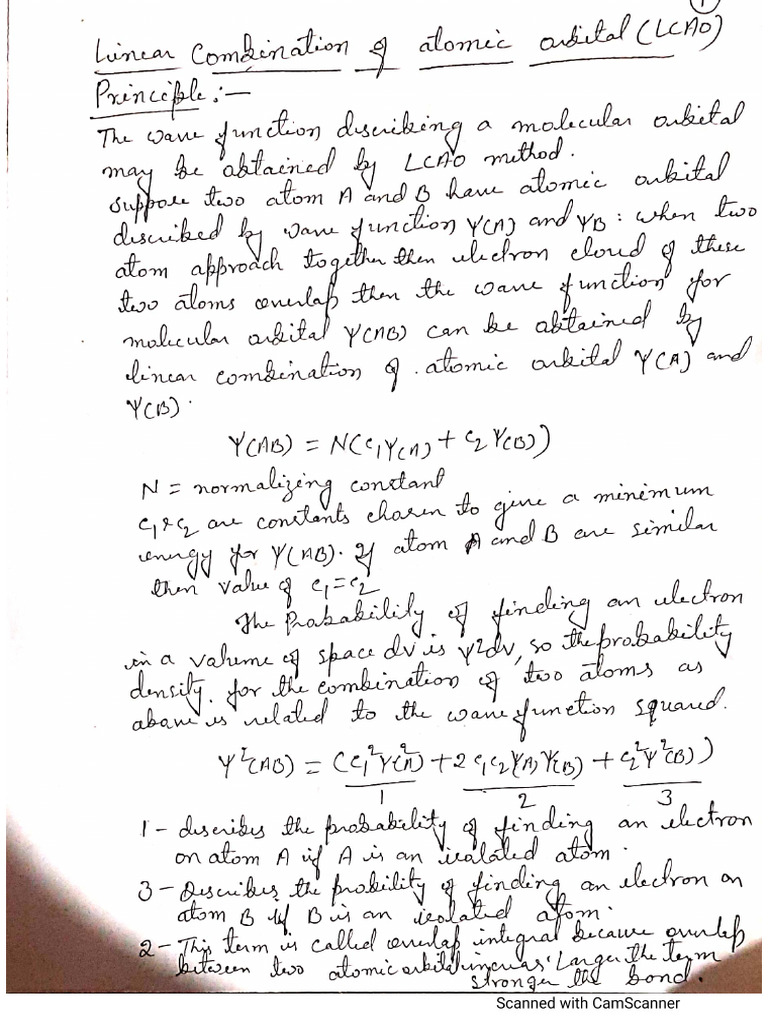 1
Linear Combination of atomic orbital (LCAO)
Principle:—
The wave function discribing a molecular orbital
may be obtained by LCAO method.
suppose two atom A and B have atomic orbital
discribed by wave function Ψ(A) and ΨB: when two
atom approach together then electron cloud of these
two atoms overlap then the wave function for
molecular orbital Ψ(AB) can be obtained by
linear combination of atomic orbital Ψ(A) and
Ψ(B).
Ψ(AB) = N(c₁Ψ(A) + c₂Ψ(B))
N = normalizing constant
c₁ & c₂ are constants chosen to give a minimum
energy for Ψ(AB). If atom A and B are similar
then value of c₁=c₂
The Probability of finding an electron
in a volume of space dv is Ψ²dv, so the probability
density for the combination of two atoms as
above is related to the wave function squared.
Ψ²(AB) = (c₁²Ψ²(A) + 2c₁c₂Ψ(A)Ψ(B) + c₂²Ψ²(B))
1 2 3
1 – discribes the probability of finding an electron
on atom A if A is an isolated atom.
3 – Describes the probility of finding an electron on
atom B if B is an isolated atom.
2 – This term is called overlap integral because overlap
between two atomic orbital increas' Larger the term
stronger the bond.
Scanned with CamScanner